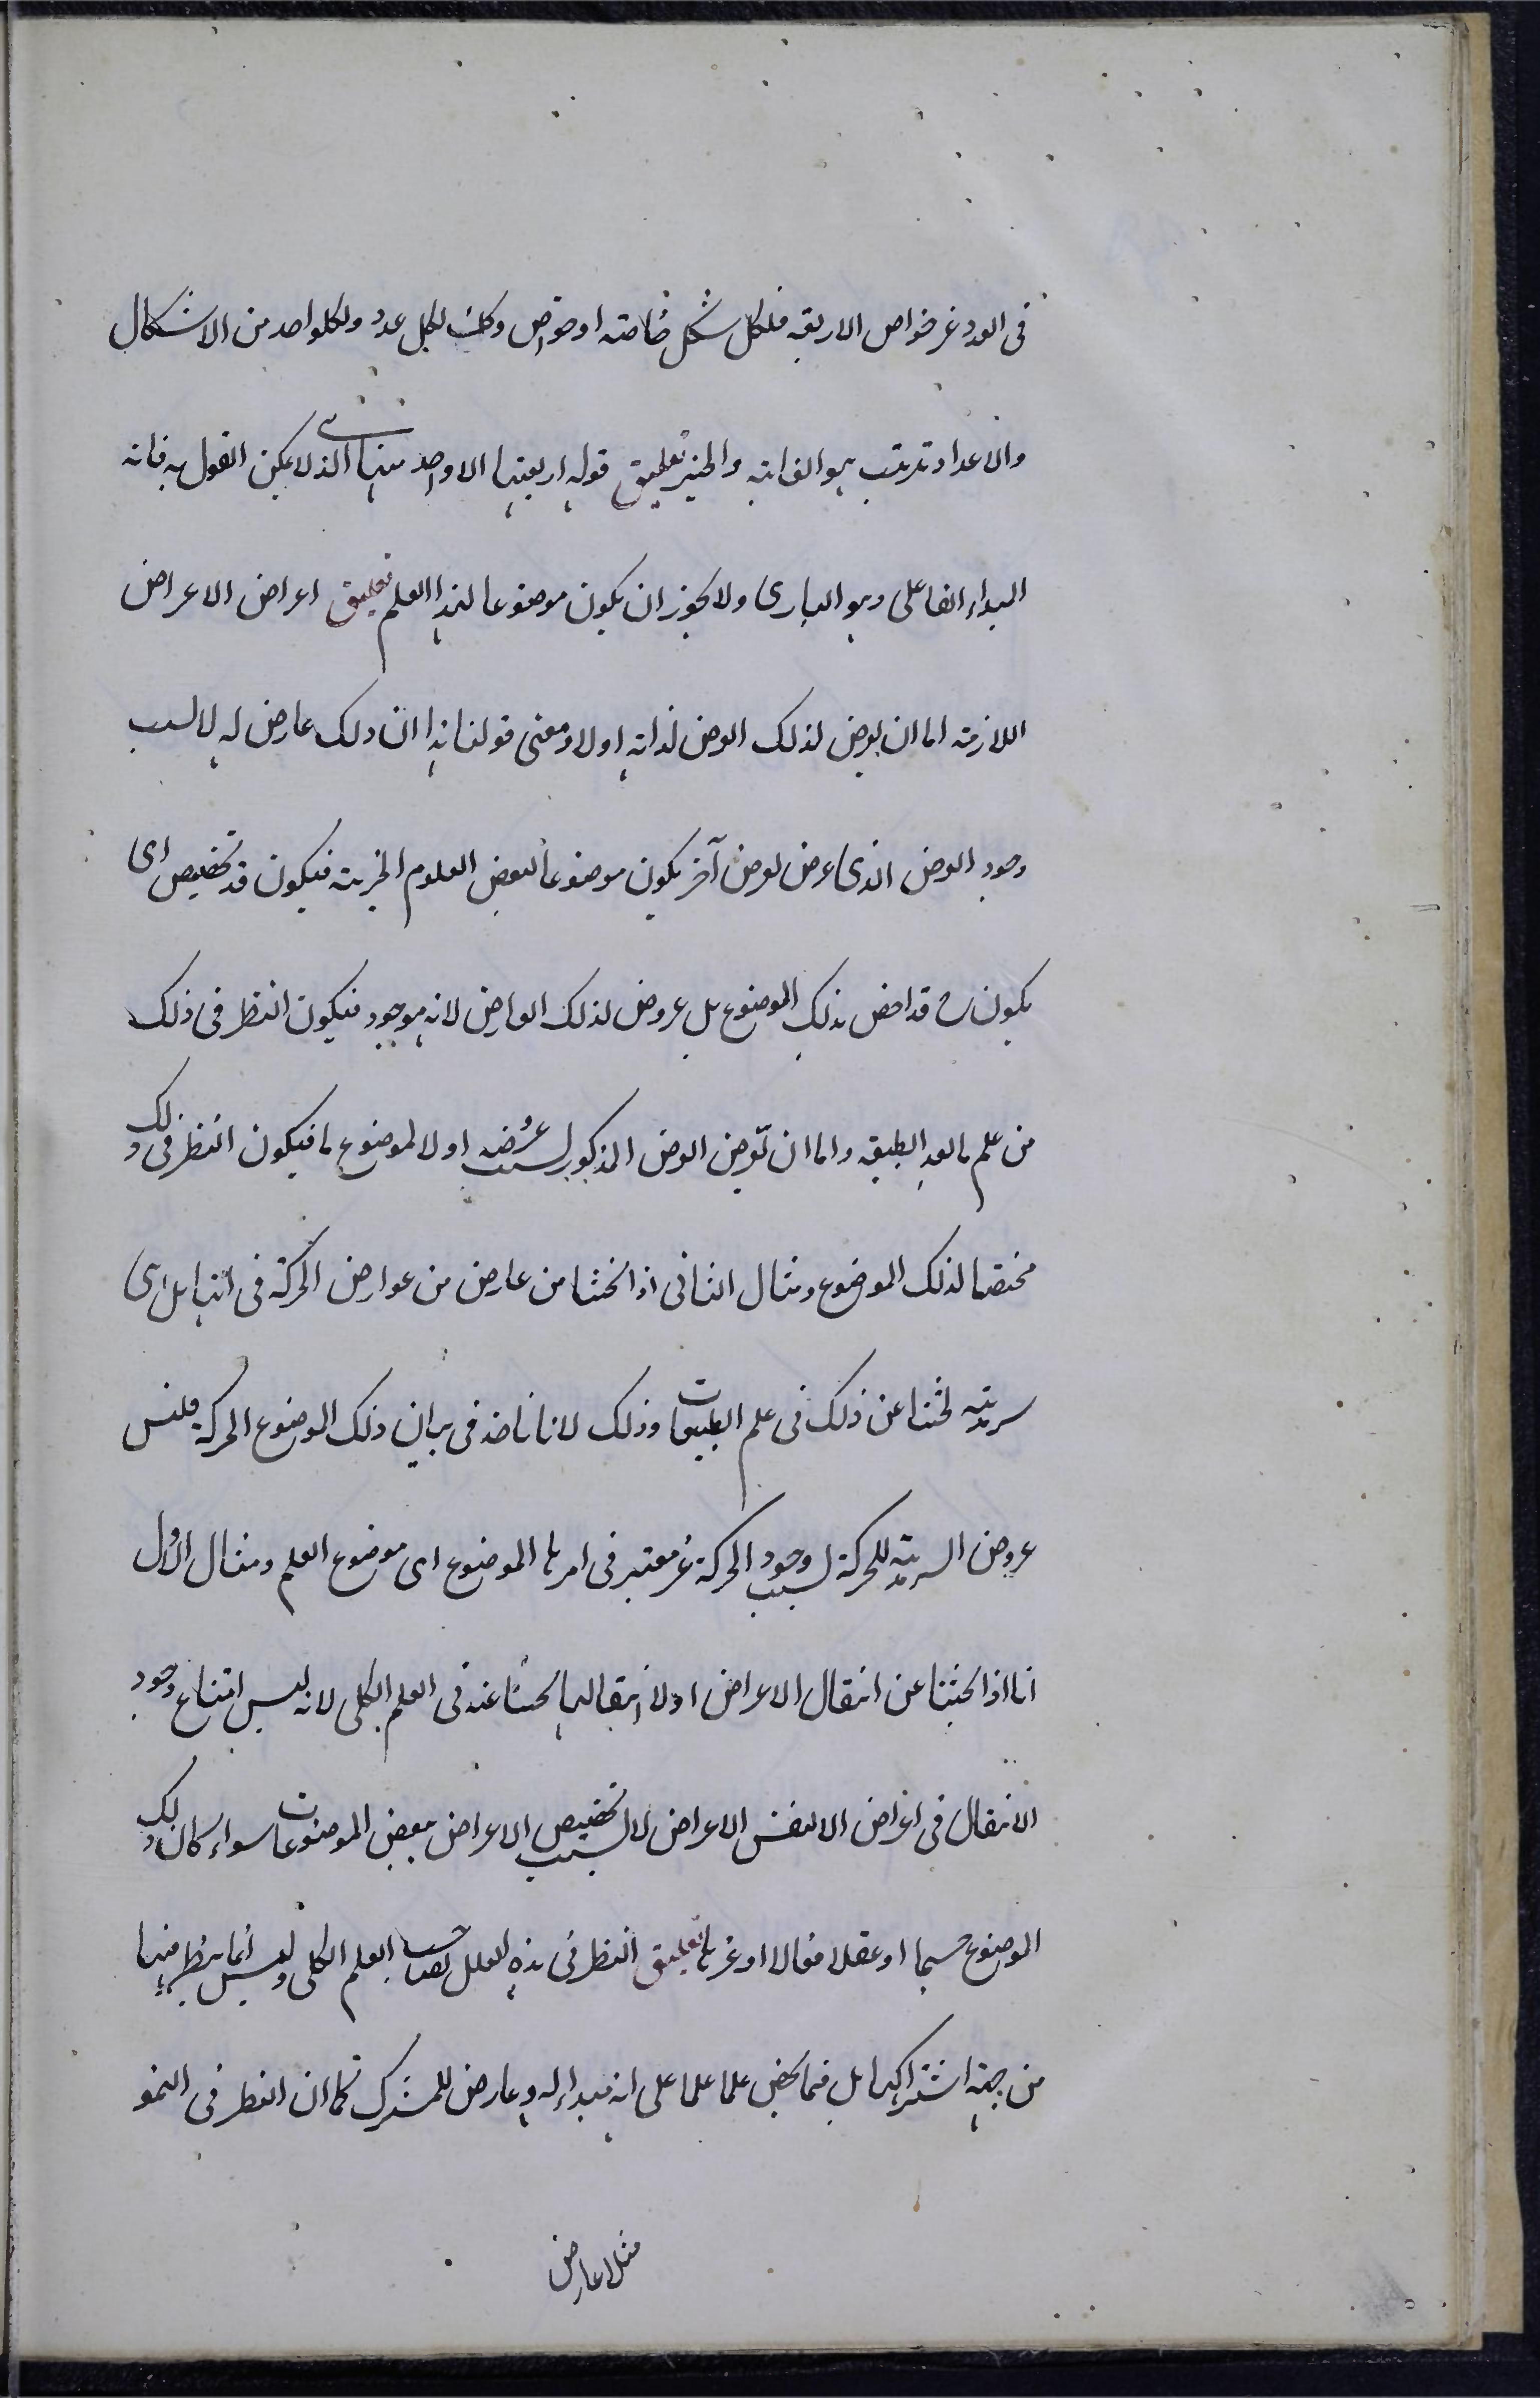 فى العدد غير خواص الاربعة فلكل شكل خاصته او خواص وكك لكل عدد ولكلواحد من الاشكال
والاعداد ترتب هو الغاية والخير تعليق قوله اربعتها الا واحد منها الذى لا يمكن القول به فانه
المبداء الفاعلى وهو البارى ولا يجوز ان يكون موضوعا لهذا العلم تعليق اعراض الاعراض
اللازمة اما ان يعرض لذلك العرض لذاته اولا ومعنى قولنا هذا ان ذلك عارض له لا لسبب
وجود العرض الذى عرض لعرض آخر يكون موضوعا لبعض العلوم الجزية فيكون قد تخصيص اى
يكون ح قد اخص بذلك الموضوع بل عروض لذلك العارض لانه موجود فيكون النظر فى ذلك
من علم ما بعد الطبيعة واما ان تعرض العرض المذكور لسبب عروضه اولا لموضوع ما فيكون النظر فى ذلك
مختصا لذلك الموضوع ومثال الثانى اذا بحثنا من عارض من عوارض الحركة فى انها هل هى
سرمدية بحثنا عن ذلك فى علم الطبيعيات وذلك لانا ناخذ فى برهان ذلك الموضوع الحركة فليس
عروض السرمدية للحركة لسبب وجود الحركة غير معتبر فى امرها الموضوع اى موضوع العلم ومثال الاول
انا اذا بحثنا عن انتقال الاعراض او لا انتقالها بحثنا عنه فى العلم الكلى لانه ليس امتناع وجود
الانتقال فى اغراض الا لنفس الاعراض لا لسبب تخصيص الاعراض ببعض الموضوعات سواء كان ذلك
الموضوع جسما او عقلا فعالا او غيرها تعليق النظر فى هذه العلل لصاحب العلم الكلى وليس انما ينظر فيها
من جهة اشتراكها بل فيما يخص علما علما على انه مبداء له وعارض للمشترك كما ان النظر فى النحو
مثلا عارض